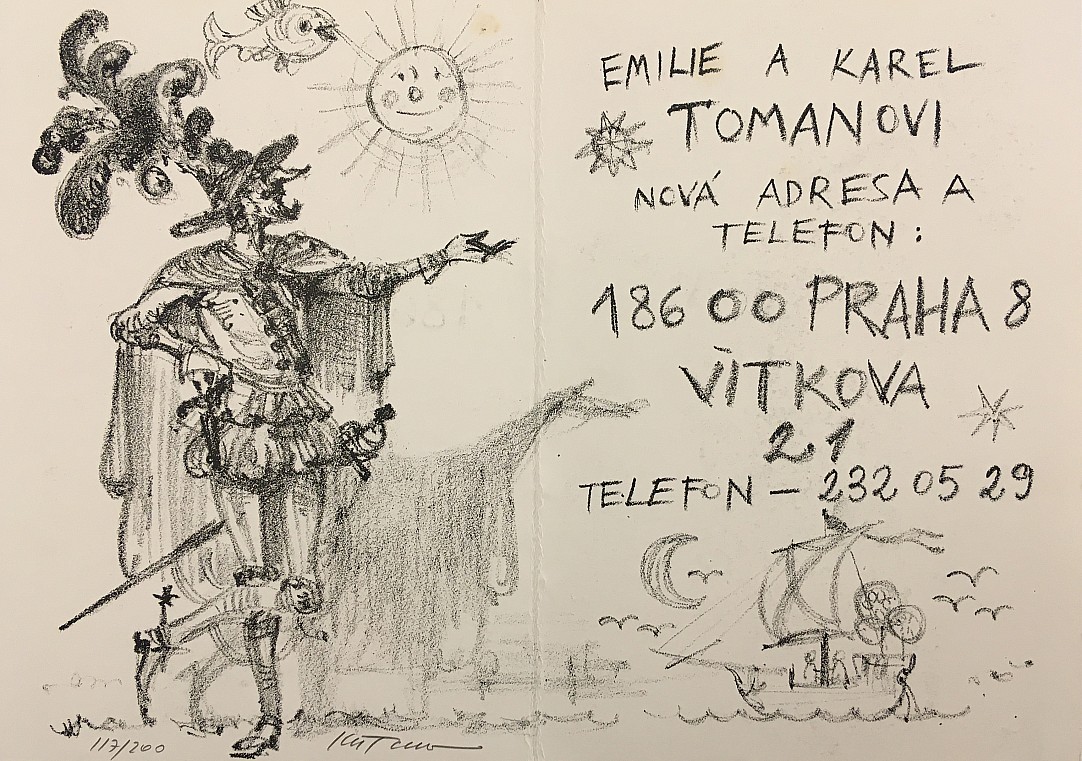 EMILIE A KAREL
TOMANOVI
NOVÁ ADRESA A
TELEFON:
186 00 PRAHA 8
VÍTKOVA
21
TELEFON – 232 05 29
117/200